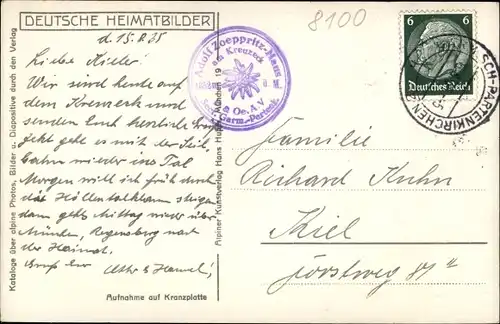 8100
DEUTSCHE HEIMATBILDER
d. 15.8.35
Wir sind heute auf
dem Kreuzeck und
senden Euch herzliche
jetzt geht es mit der Seil-
bahn wieder ins Tal
Morgen will ich früh durch
das Höllentalklamm steigen
dann gehts Mittag wieder über
München, Regensburg nach
der Heimat.
Familie
Richard Kuhn
Kiel
Adolf Zoeppritz-Haus
Kreuzeck
& Oe. A.V.
Sekt. Garm.-Partenk.
6 6
Deutsches Reich
SCH-PARTENKIRCHEN
Kataloge über alpine Photos, Bilder u. Diapositive durch den Verlag
Alpiner Kunstverlag Hans Huber München 19
Aufnahme auf Kranzplatte